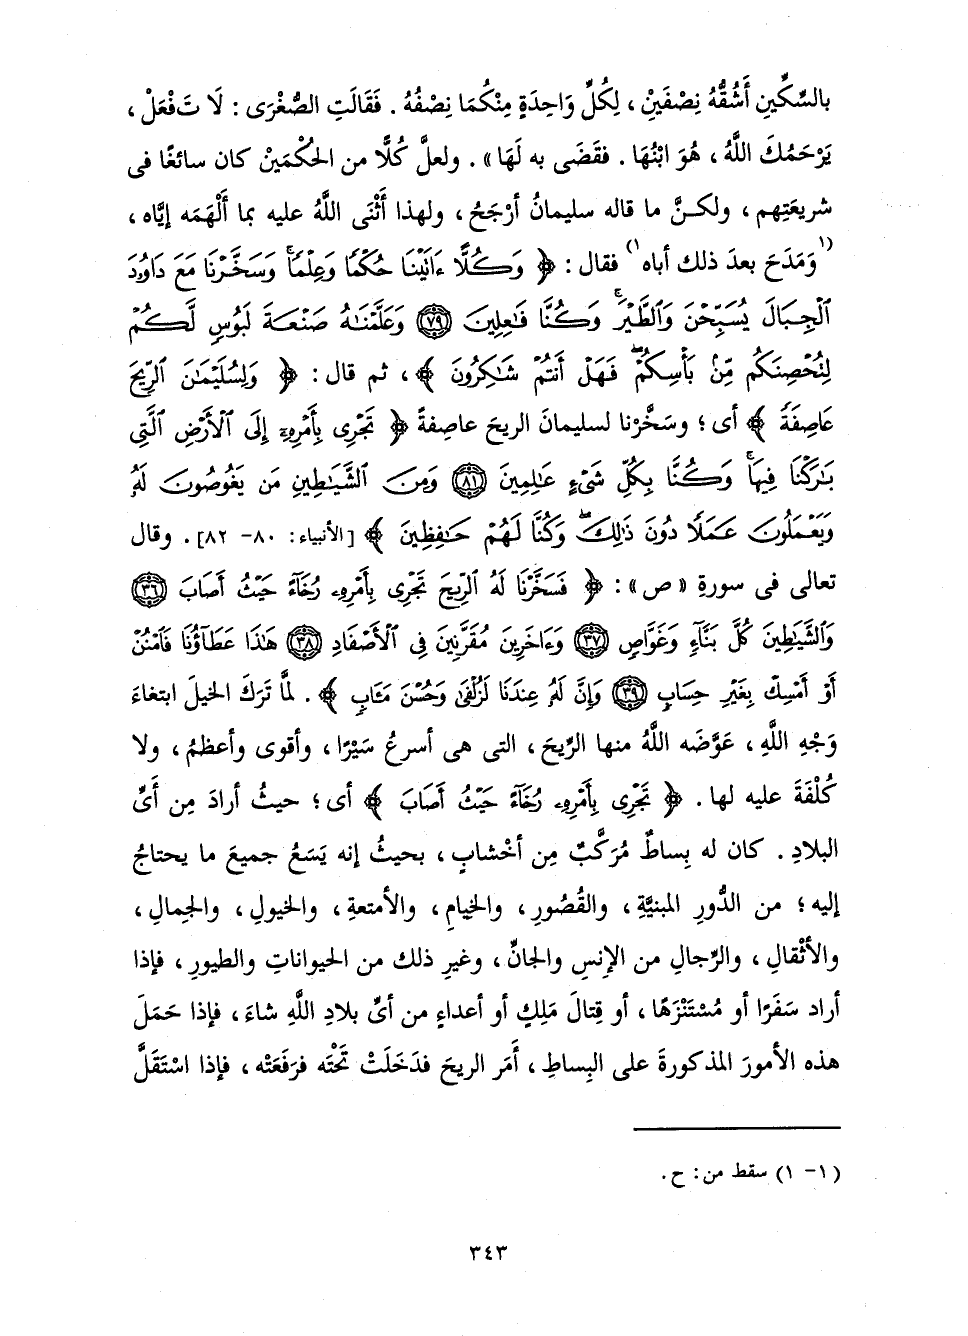 بالسِّكِّينِ أَشُقُّهُ نِصْفَيْنِ ، لِكُلِّ وَاحِدَةٍ مِنْكُمَا نِصْفُهُ . فَقَالَتِ الصُّغْرَى : لَا تَفْعَلْ ،
يَرْحَمُكَ اللَّهُ ، هُوَ ابْنُهَا . فقَضَى به لَهَا » . ولعلَّ كُلًّا من الحُكْمَيْنْ كان سائغًا فى
شريعَتِهم ، ولكـنَّ ما قاله سليمانُ أرْجَحُ ، ولهذا أثْنَى اللَّهُ عليه بما أَلْهَمَه إيَّاه ،
(١ ومَدَحَ بعدَ ذلك أباه ١) فقال : ﴿ وَكُلًّا ءَاتَيْنَا حُكْمًا وَعِلْمًاۚ وَسَخَّرْنَا مَعَ دَاوُۥدَ
ٱلْجِبَالَ يُسَبِّحْنَ وَٱلطَّيْرَۚ وَكُنَّا فَٰعِلِينَ ﴿٧٩﴾ وَعَلَّمْنَٰهُ صَنْعَةَ لَبُوسٍ لَّكُمْ
لِتُحْصِنَكُم مِّنۢ بَأْسِكُمْۖ فَهَلْ أَنتُمْ شَٰكِرُونَ ﴾ ، ثم قال : ﴿ وَلِسُلَيْمَٰنَ ٱلرِّيحَ
عَاصِفَةً ﴾ أى ؛ وسَخَّرْنا لسليمانَ الريحَ عاصفةً ﴿ تَجْرِى بِأَمْرِهِۦٓ إِلَى ٱلْأَرْضِ ٱلَّتِى
بَٰرَكْنَا فِيهَاۚ وَكُنَّا بِكُلِّ شَىْءٍ عَٰلِمِينَ ﴿٨١﴾ وَمِنَ ٱلشَّيَٰطِينِ مَن يَغُوصُونَ لَهُۥ
وَيَعْمَلُونَ عَمَلًا دُونَ ذَٰلِكَۖ وَكُنَّا لَهُمْ حَٰفِظِينَ ﴾ [الأنبياء: ٨٠- ٨٢] . وقال
تعالى فى سورةِ « ص » : ﴿ فَسَخَّرْنَا لَهُ ٱلرِّيحَ تَجْرِى بِأَمْرِهِۦ رُخَآءً حَيْثُ أَصَابَ ﴿٣٦﴾
وَٱلشَّيَٰطِينَ كُلَّ بَنَّآءٍ وَغَوَّاصٍ ﴿٣٧﴾ وَءَاخَرِينَ مُقَرَّنِينَ فِى ٱلْأَصْفَادِ ﴿٣٨﴾ هَٰذَا عَطَآؤُنَا فَٱمْنُنْ
أَوْ أَمْسِكْ بِغَيْرِ حِسَابٍ ﴿٣٩﴾ وَإِنَّ لَهُۥ عِندَنَا لَزُلْفَىٰ وَحُسْنَ مَـَٔابٍ ﴾ . لمَّا تَرَكَ الخيلَ ابتغاءَ
وَجْهِ اللَّهِ ، عَوَّضَه اللَّهُ منها الرِّيحَ ، التى هى أسرعُ سَيْرًا ، وأقوى وأعظمُ ، ولا
كُلْفَةَ عليه لها . ﴿ تَجْرِى بِأَمْرِهِۦ رُخَآءً حَيْثُ أَصَابَ ﴾ أى ؛ حيثُ أرادَ مِن أىِّ
البلادِ . كان له بِساطٌ مُرَكَّبٌ مِن أخْشابٍ ، بحيثُ إنه يَسَعُ جميعَ ما يحتاجُ
إليه ؛ من الدُّورِ المبنيَّةِ ، والقُصُورِ ، والخيامِ ، والأمتعةِ ، والخيولِ ، والجِمالِ ،
والأثْقالِ ، والرِّجالِ من الإنسِ والجانِّ ، وغيرِ ذلك من الحيواناتِ والطيورِ ، فإذا
أراد سَفَرًا أو مُسْتَنْزَهًا ، أو قِتالَ مَلِكٍ أو أعداءٍ من أىِّ بلادِ اللَّهِ شاءَ ، فإذا حَمَلَ
هذه الأمورَ المذكورةَ على البِساطِ ، أَمَر الريحَ فدَخَلَتْ تَحْتَه فرَفَعَتْه ، فإذا اسْتَقَلَّ
(١- ١) سقط من : ح .
٣٤٣